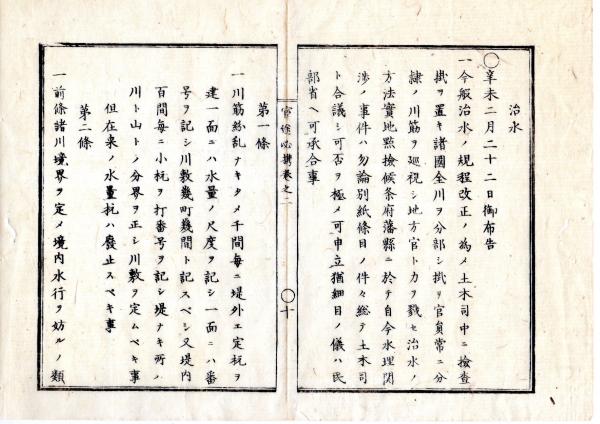 治水
〇辛未二月二十二日御布告
一今般治水ノ規程改正ノ為メ土木司中ニ檢查
掛ヲ置キ諸國全川ヲ分部シ掛リ官員常ニ分
隷ノ川筋ヲ廵視シ地方官ト力ヲ戮セ治水ノ
方法實地點檢候条府藩縣ニ於テ自今水理関
渉ノ事件ハ勿論別紙條目ノ件々総テ土木司
ト合議シ可否ヲ極メ可申立猶細目ノ儀ハ民
部省ヘ可承合事
官途必携巻之二
〇十
第一條
一川筋紛乱ナキタメ千間每ニ堤外エ定杭ヲ
建一面ニハ水量ノ尺度ヲ記シ一面ニハ番
号ヲ記シ川敷幾町幾間ト記スベシ又堤内
百間每ニ小杭ヲ打番号ヲ記シ堤ナキ所ノ
川ト山トノ分界ヲ正シ川敷ヲ定ムベキ事
但在来ノ水量杭ハ廢止スベキ事
第二條
一前條諸川境界ヲ定メ境内水行ヲ妨ルノ類